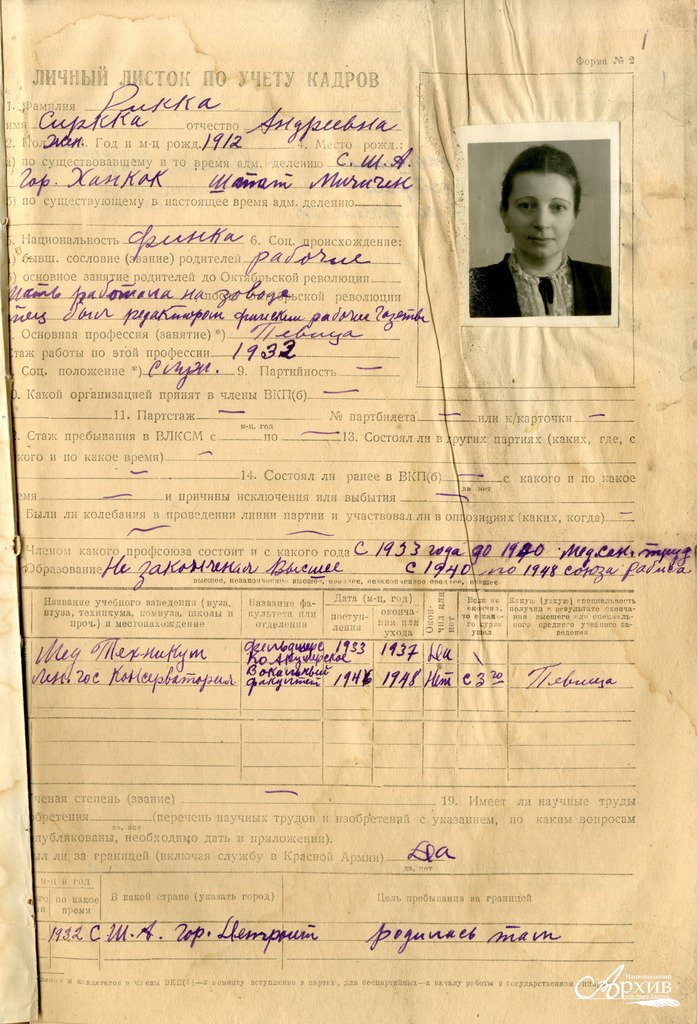 Форма № 2
1
ЛИЧНЫЙ ЛИСТОК ПО УЧЕТУ КАДРОВ
1. Фамилия Рикка
имя Сиркка отчество Андреевна
2. Пол жен. Год и м-ц рожд. 1912 4. Место рожд.:
а) по существовавшему в то время адм. делению С. Ш. А.
Гор. Ханкок Штат Мичичен
б) по существующему в настоящее время адм. делению
5. Национальность финка 6. Соц. происхождение:
а) бывш. сословие (звание) родителей рабочие
б) основное занятие родителей до Октябрьской революции
мать работала на заводе после Октябрьской революции
отец был редактором финской рабочей газеты
Основная профессия (занятие) *) Певица
стаж работы по этой профессии 1932
Соц. положение *) служ. 9. Партийность —
0. Какой организацией принят в члены ВКП(б) —
11. Партстаж — № партбилета — или к/карточки —
м-ц, год
Стаж пребывания в ВЛКСМ с — по — 13. Состоял ли в других партиях (каких, где, с
кого и по какое время) —
— 14. Состоял ли ранее в ВКП(б) — с какого и по какое
да, нет
емя — и причины исключения или выбытия —
Были ли колебания в проведении линии партии и участвовал ли в оппозициях (каких, когда) —
Членом какого профсоюза состоит и с какого года с 1933 года до 1940 Медсан-труд
Образование Не законченя Высшее с 1940 по 1948 союза рабиса
высшее, незаконченное высшее, среднее, незаконченное среднее, низшее
Название учебного заведения (вуза, втуза, техникума, комвуза, школы и проч.) и местонахождение
Название факультета или отделения
Дата (м-ц, год)
поступления
окончания или ухода
Окончил или нет
Если не окончил, то с какого курса ушел
Какую (узкую) специальность получил в результате окончания высшего или специального среднего учебного заведения
Мед Техникум фельдшерско-Акушерское 1933 1937 Да \
Лен. гос Консерватория Вокальный факультет 1946 1948 Нет с 3го Певица
ченая степень (звание) — 19. Имеет ли научные труды
обретения (перечень научных трудов и изобретений с указанием, по каким вопросам
да, нет
опубликованы, необходимо дать в приложении).
ыл ли за границей (включая службу в Красной Армии) Да
да, нет
м-ц и год
по какое время
В какой стране (указать город)
Цель пребывания за границей
1932 С Ш. А. гор. Детроит родилась там
членов и кандидатов в члены ВКП(б)—к моменту вступления в партию, для беспартийных—к началу работы в государственном
Национальный
Архив